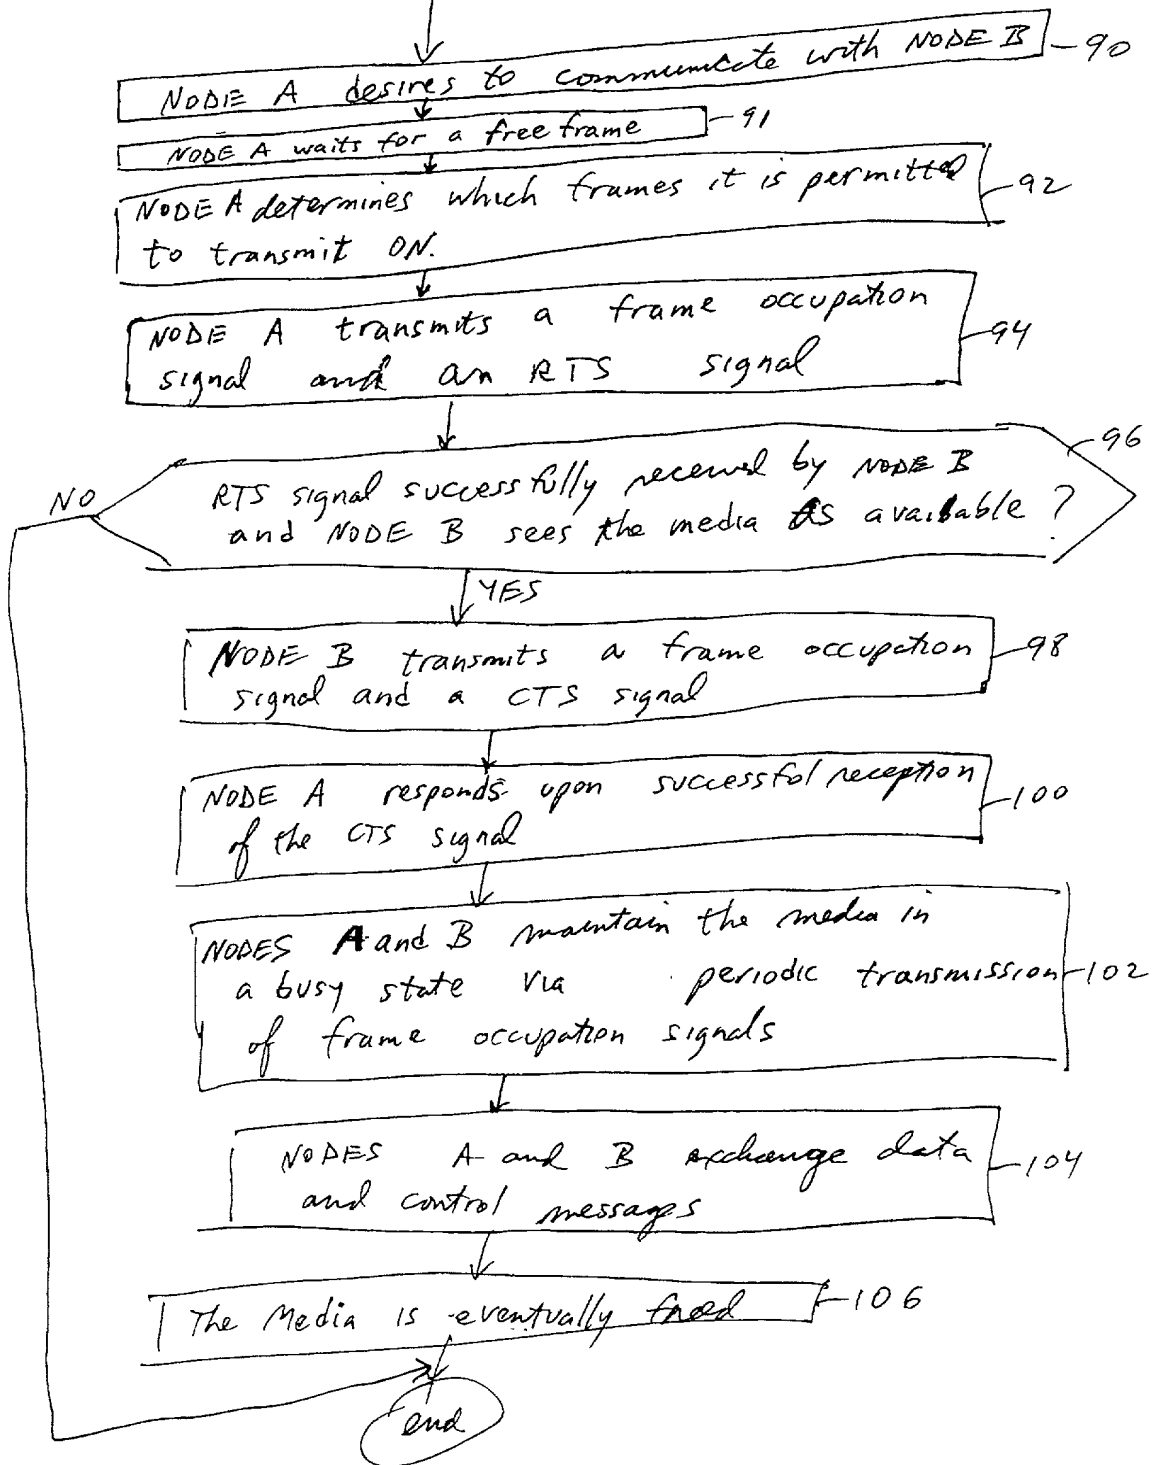 NODE A desires to communicate with NODE B 90
NODE A waits for a free frame 91
NODE A determines which frames it is permitted 92
to transmit ON.
NODE A transmits a frame occupation
signal and an RTS signal 94
96
NO RTS signal successfully received by NODE B
and NODE B sees the media as available ?
YES
NODE B transmits a frame occupation 98
signal and a CTS signal
NODE A responds upon successful reception 100
of the CTS signal
NODES A and B maintain the media in
a busy state via periodic transmission 102
of frame occupation signals
NODES A and B exchange data 104
and control messages
The Media is eventually freed 106
end